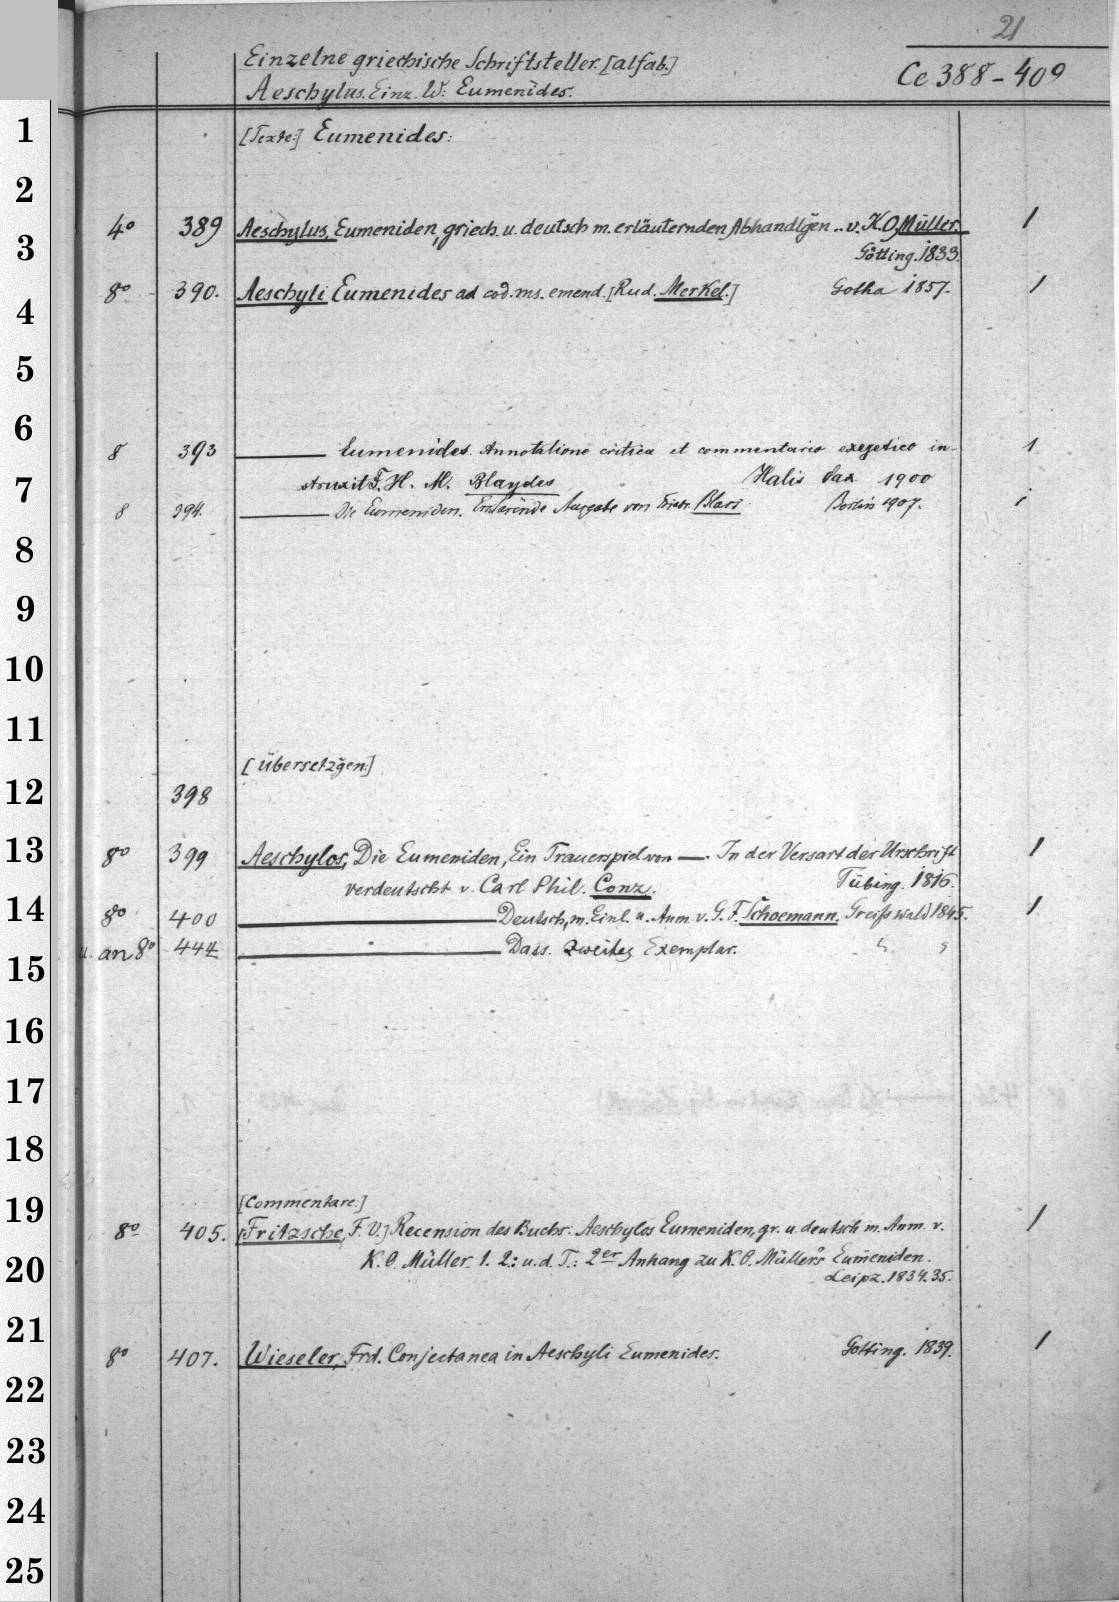 21
Einzelne griechische Schriftsteller. [alfab.]
Ce 388-409
Aeschylus. Einz. W: Eumenides.
1
[Texte:] Eumenides:
2
4° 389 Aeschylus, Eumeniden, griech. u. deutsch m. erläuternden Abhandlg̅en .. v. K. O. Müller. 1
3
Götting. 1833.
8° 390. Aeschyli Eumenides ad cod. ms. emend. [Rud. Merkel.] Gotha 1857. 1
4
5
6
8 393 ——— Eumenides. Annotatione critica et commentario exegetico in- 1
7
struxit F. H. M. Blaydes Halis Sax 1900
8 394. ——— Die Eumeniden. Erklärende Ausgabe von Friedr. Blass Berlin 1907. 1
8
9
10
11
[Übersetzg̅en:]
12
398
13
8° 399 Aeschylos, Die Eumeniden, Ein Trauerspiel von —. In der Versart der Urschrift 1
verdeutscht v. Carl Phil. Conz. Tübing. 1816.
14
8° 400 ——— Deutsch, m. Einl. u. Anm. v. G. F. Schoemann. Greifswald 1845. 1
u. an 8° 444 ——— Dass. Zweites Exemplar. " "
15
16
17
18
19
[Commentare:]
8° 405. [Fritzsche, F. V.] Recension des Buchs: Aeschylos Eumeniden, gr. u. deutsch m. Anm. v. 1
20
K. O. Müller. 1. 2.: u. d. T.: 2er Anhang zu K. O. Müller's Eumeniden.
Leipz. 1834. 35.
21
8° 407. Wieseler, Frd. Conjectanea in Aeschyli Eumenides. Gotting. 1839. 1
22
23
24
25